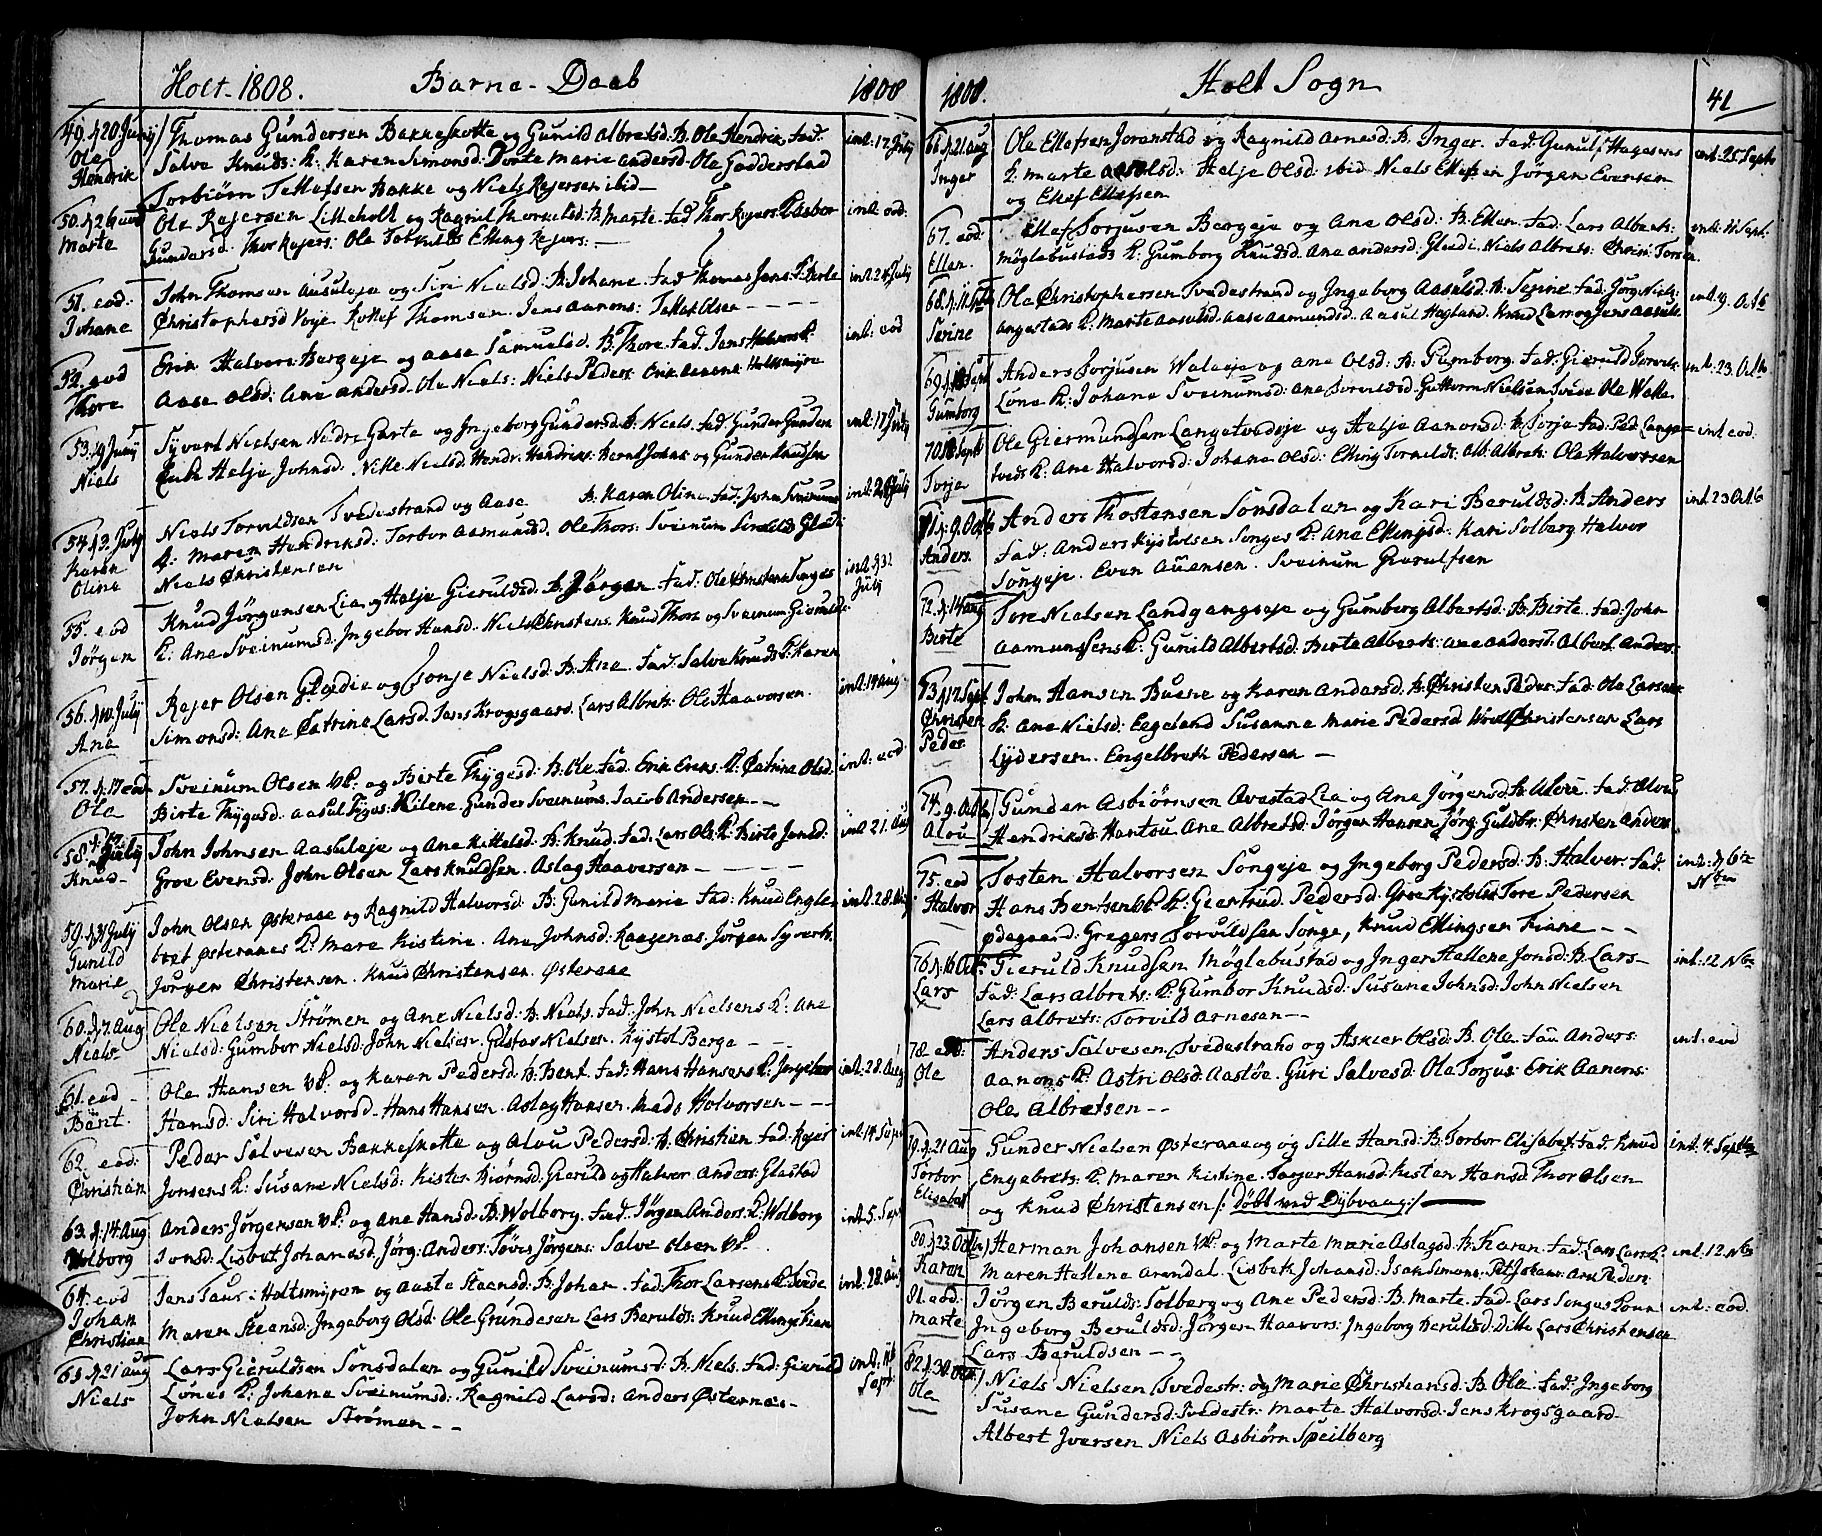 Holt - 1808. Barne - Daab 1808
49. d 20 Juny Thomas Gundersen Bakkeskotte og Gunild Albretsd: B. Ole Hendrik fad: int: 17 July
Ole Salve Knuds: K: Karen Simonsd: Dorte Marie Andersd: Ole Gadderstad
Hendrik Torbiörn Tellefsen Bakke og Niels Rejersen ibid -
50. d 26 eod Ole Rejersen Lilleholt og Ragnil Thorkelsd: B. Marte. fad: Thor Rejers: K: Asbor int: eod:
Marte Gundersd: Thor Rejers: Ole Torkilds Elling Rejers: -
51. eod: John Thomsen Aasuleje og Siri Nielsd: B. Johane fad Thomas Jens: K: Berte int: 24 July
Johane Christophersd Voje Rollef Thomsen. Jens Aanons: Tellef Olsen - - - -
52. eod Erik Halvors: Bergeje og Aase Samuelsd: B. Thore. fad: Jens Halvors: K: int: eod
Thore Aase Olsd: Ane Andersd. Ole Niels: Niels Peders: Erik Aanons Holtsmyre
53. d 9 July Syvert Nielsen Nedre Garte og Ingeborg Gundersd: B: Niels. fad: Gunder Gunders int: 17 July
Niels Helje Johnsd. Nille Nielsd. Hendr: Hendriks: Bernt Johns og Gunder Knudsen
54. d 3. July Niels Torvildsen Tvedestrand og Aase B: Karen Oline. fad: John Sveinums int: 24 July
Karen K: Maren Hendriksd: Torbor Aamundsd. Ole Thors: Sveinum
Oline Niels Christensen
55. eod Knud Jörgensen Lia og Helje Gieruldsd: B. Jörgen. fad: Ole Christens: Songes int. d 31 July
Jörgen K: Ane Sveinumsd: Ingebor Hansd: Niels Christens. Knud Thors og Sveinum Gieruldss:
56. d 10. July Rejer Olsen Glødie og Sonje Nielsd: B. Ane. fad: Salve Knuds K: Karen int: 14 Aug.
Ane Simonsd: Ane Catrine Larsd: Jens Krogsgaard. Lars Albrets: Ole Haavorsen.
57. d 17 eod Sveinum Olsen VK: og Birte Thygesd: B. Ole fad. Erik Eriks. K: Catrine Olsd. int: eod
Ole Birte Thygesd: Aasul Tygos: Kilene. Gunder Sveinums. Jacob Andersen - -
58. July John Johnsen Aasuleje og Ane Kittelsd: B: Knud. fad. Lars Ols: K: Birte Jonsd: int 21. Aug
Knud - Groe Evensd: John Olsen Lars Knudsen. Aslag Haaversen - - - -
59. d 31 July John Olsen Østeraae og Ragnild Halvorsd: B: Gunild Marie fad: Knud Engle int. 28. Aug
Gunild bret Østeranes K: Mare Kistine. Ane Johnsd: Kaagenæs. Jörgen Syverts.
Marie Jörgen Christensen. Knud Christensen. Østeraae
60. d 7. Aug Ole Nielsen Strömen og Ane Nielsd: B: Niels. fad: John Nielsens K: Ane
Niels - Nielsd: Gumbor Nielsd: John Nielsen. Gustav Nielsen. Kystol Berge - -
61. eod - Ole Hansen VK: og Karen Pedersd: B: Bent. fad: Hans Hansens K: Ingebor int: 28. Aug
Bent. Hansd: Siri Halvorsd - Hans Hansen. Aslag Hansen. Mads Halvorsen - - -
62. eod: Peder Salvesen Bakkeskotte og Alou Pedersd: B. Christien fad: Rejer int. 14. Sept
Christian Jonsens K: Susane Nielsd: Kisten Biörnsd: Gierild og Halvor Anders: Glastad
63. d 14. Aug Anders Jörgensen VK: og Ane Hansd: B: Wolborg. fad: Jörgen Anders: K: Wolborg int. 5. Sept
Wolborg Jonsd: Lisbet Johanesd: Jörg: Anders: Töres Jörgens: Salve Olsen VK.
64. eod Jens Taur: Holtsmyren og Aaste Steensd: B: Johan. fad: Thor Larsens K: int. 28. Aug
Johan Maren Steensd: Ingeborg Olsd: Ole Gundesen Lars Berulds: Knud Ellings Fien
Christian
65. d 21 Aug Lars Gieruldsen Songdalen og Gunild Sveinumsd: B. Niels. fad: Gieruld int: Sept
Niels Lönes K: Johane Sveinumsd: Ragnild Larsd: Anders Østernæs -
John Nielsen Strömen - -
1808. Holt Sogn 41
66. d 21 Aug Ole Ellefsen Joranstad og Ragnild Arnesd: B. Inger. fad: Gunulf Hagesens int: 25 Sept
Inger K: Marte Aasolsd: Helje Olsd: ibid Niels Ellefsen Jörgen Evensen
og Ellef Ellefsen
67. eod: Ellef Torjusen Bergeje og Ane Olsd: B. Ellen. fad: Lars Albrets: int: 11. Sept.
Ellen. Möglebustads K: Gumborg Knudsd. Ane Andersd: Glendi. Niels Albrets: Christ: Torsen
68. d 11. Ole Christophersen Tvedestrand og Ingeborg Aasulsd: B: Serine. fad: Jörg: Niels: int. 9. Octb
Serine Angestads K: Marte Aasulsd. Aase Aamundsd. Aasul Hagland. Knud Lam og Jens Aasuls
69. d 18 Sept Anders Torjusen Waleje og Ane Olsd: B. Gumborg. fad: Gieruld Torvils: int. 23. Octb
Gumborg Löne K: Johane Sveinumsd: Ane Torvildsd. Guttorm Nielsen Tvede Ole Walle
70. 18 Sept Ole Giermundsen Langetvedeje og Helje Aanonsd: B. Torje fad: Ped: Lange= int eod:
Torje tveds K: Ane Halvorsd: Johane Olsd: Elling Torkilds: Alb: Albrets: Ole Halvorsen
71. d. 9. Octb Anders Thostensen Songdalen og Kari Beruldsd: B: Anders int. 23 Octb
Anders. fad: Anders Kystolsen Songes K: Ane Ellingsd: Kari Solberg Halvor
Songeje. Even Avensen. Sveinum Gierulfsen
72. d. 14 Aug Tore Nielsen Landgangseje og Gumborg Albertsd: B: Birte. fad: John
Birte Aamundsens K: Gunild Albertsd: Birte Albrets: Ane Andersd: Albert Anders:
73. d 17 Sept John Hansen Buene og Karen Andersd: B. Christen Peder. fad: Ole Larsens
Christen K: Ane Nielsd: Eegeland Susanne Marie Pedersd. Christensen Lars
Peder. Lydersen. Engelbreth Pedersen -
74. 9. Octb Gunden Asbiörnsen Qvastad Lia og Ane Jörgensd: B. Alou. fad: Olou
Alou Hendriksd: Hantou Ane Albretsd: Jörgen Hansen Jörg: Guldbr: Christen Anders
75. eod Tosten Halvorsen Songeje og Ingeborg Pedersd: B. Halver. fad: int: d 6te Nbr
Halvor Hans Bentsen VK K: Giertrud Pedersd. Groe Kystolsd Tore Pedersen
Ødegaard. Gregers Torvildsen Songe, Knud Ellingsen Fiane - -
76. d. 16 Oct: Gieruld Knudsen Möglebustad og Inger Hellene Jonsd: B. Lars - int: 12 Nbr
Lars fad: Lars Albrets: K: Gumbor Knudsd: Susane Johnsd: John Nielsen
Lars Albrets: Torvild Arnesen -
78. eod: Anders Salvesen. Tvedestrand og Askier Olsd: B. Ole. fad Anders: int: eod
Ole Aanons K: Astri Olsd: Aastöe. Guri Salvesd: Ole Torjus: Erik Aanons:
Ole Albretsen - -
79. d. 21 Aug Gunder Nielsen Østeraae og Sille Hansd: B. Torbor Elisabet. fad: Knud int: 4. Septbr
Torbor Engebrets: K: Maren Kistine. Torger Hansd: Kisten Hansd Thor Olsen
Elisabet og Knud Christensen /: Döbt ved Dybvaag :/
80. d 23. Octb Herman Johansen VK: og Marte Marie Aslagsd: B. Karen. fad: Lars Lars K: int: 12. Nbr
Karen Maren Hellene Arendal. Lisbeth Johansd: Isak Simons: Pet: Johans: Arn: Peders
81. eod: Jörgen Berulds: Solberg og Ane Pedersd: B. Marte. fad. Lars Songes Kone int: eod.
Marte Ingeborg Beruldsd: Jörgen Haavors: Ingeborg Beruldsd. Ditte Lars Christensen
Lars Beruldsen - -
82. d. 30 Octb Niels Nielsen Tvedestr: og Marie Christiansd: B. Ole. fad: Ingeborg
Ole Susane Gundersd: Tvedestr: Marte Halvorsd: Jens Krogsgaard -
Albert Iversen Niels Asbiörn Speilberg